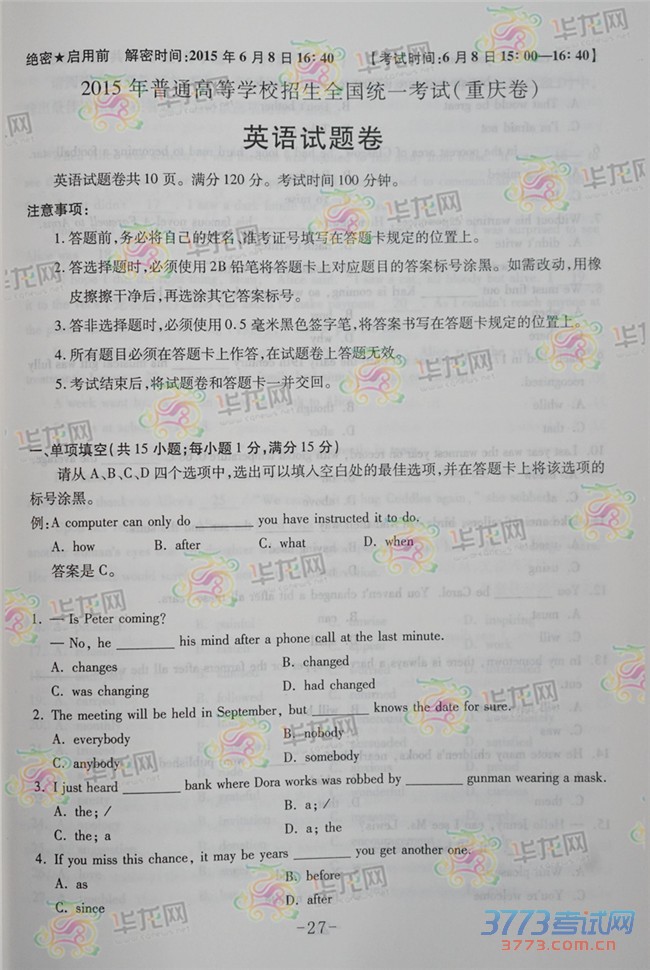 绝密★启用前 解密时间:2015 年 6 月 8 日 16:40 【考试时间:6 月 8 日 15:00—16:40】
2015 年普通高等学校招生全国统一考试(重庆卷)
英语试题卷
英语试题卷共 10 页。满分 120 分。考试时间 100 分钟。
注意事项:
1. 答题前,务必将自己的姓名,准考证号填写在答题卡规定的位置上。
2. 答选择题时,必须使用 2B 铅笔将答题卡上对应题目的答案标号涂黑。如需改动,用橡
皮擦擦干净后,再选涂其它答案标号。
3. 答非选择题时,必须使用 0.5 毫米黑色签字笔,将答案书写在答题卡规定的位置上。
4. 所有题目必须在答题卡上作答,在试题卷上答题无效。
5. 考试结束后,将试题卷和答题卡一并交回。
一、单项填空(共 15 小题;每小题 1 分,满分 15 分)
请从 A、B、C、D 四个选项中,选出可以填入空白处的最佳选项,并在答题卡上将该选项的
标号涂黑。
例:A computer can only do ________ you have instructed it to do.
A. how B. after C. what D. when
答案是 C。
1. — Is Peter coming?
— No, he ________ his mind after a phone call at the last minute.
A. changes B. changed
C. was changing D. had changed
2. The meeting will be held in September, but ________ knows the date for sure.
A. everybody B. nobody
C. anybody D. somebody
3. I just heard ________ bank where Dora works was robbed by ________ gunman wearing a mask.
A. the; / B. a; /
C. the; a D. a; the
4. If you miss this chance, it may be years ________ you get another one.
A. as B. before
C. since D. after
-27-
华龙网
3773考试网
3773.com.cn